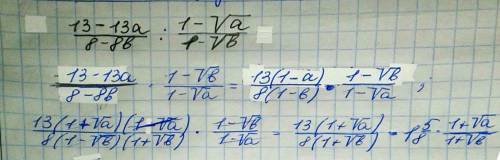 13-13a / 8-8b : 1-√a / 1-√b
13-13a / 8-8b · 1-√b / 1-√a = 13(1-a) / 8(1-b) · 1-√b / 1-√a ;
13(1+√a)(1-√a) / 8(1-√b)(1+√b) · 1-√b / 1-√a = 13(1+√a) / 8(1+√b) = 1 5/8 · 1+√a / 1+√b